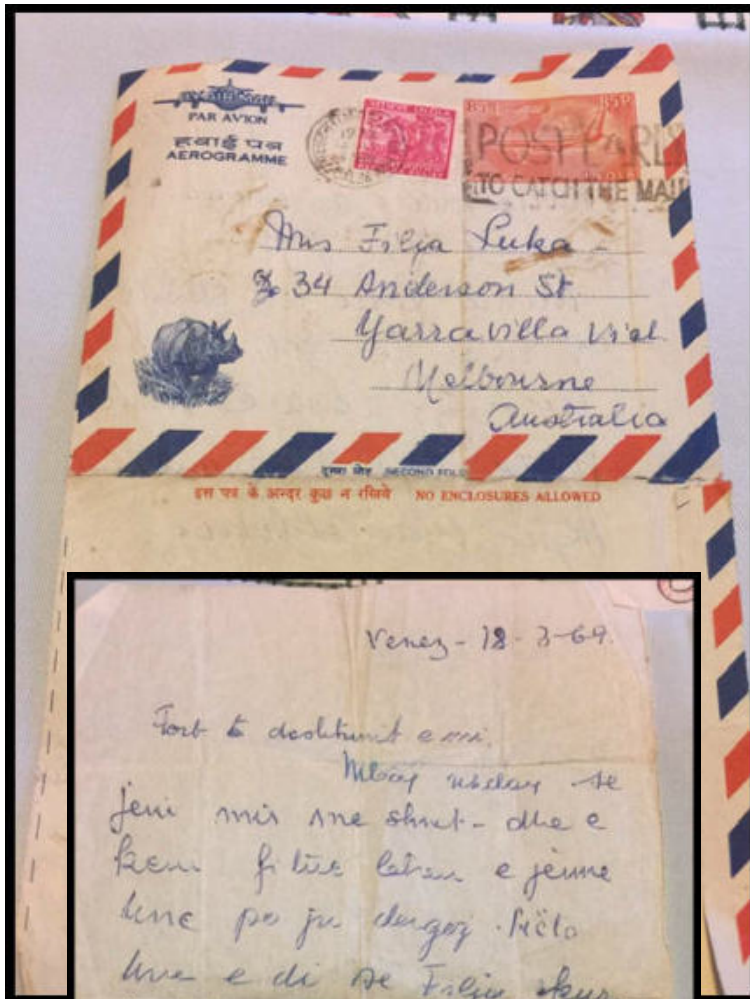 PAR AVION
हवाई पत्र
AEROGRAMME
85P 85P
POST EARLY
TO CATCH THE MAIL
Mrs Filja Luka -
c/o 34 Anderson St.
Yarravilla Vict.
Melbourne
Australia
दूसरा मोड़ SECOND FOLD
इस पत्र के अन्दर कुछ न रखिये NO ENCLOSURES ALLOWED
18-3-69.
Fort të dashtunit e mi.
Mbaj se
jeni mir me shnet - dhe e
kem e jeme
une po ju dergoj
une e di se Filja